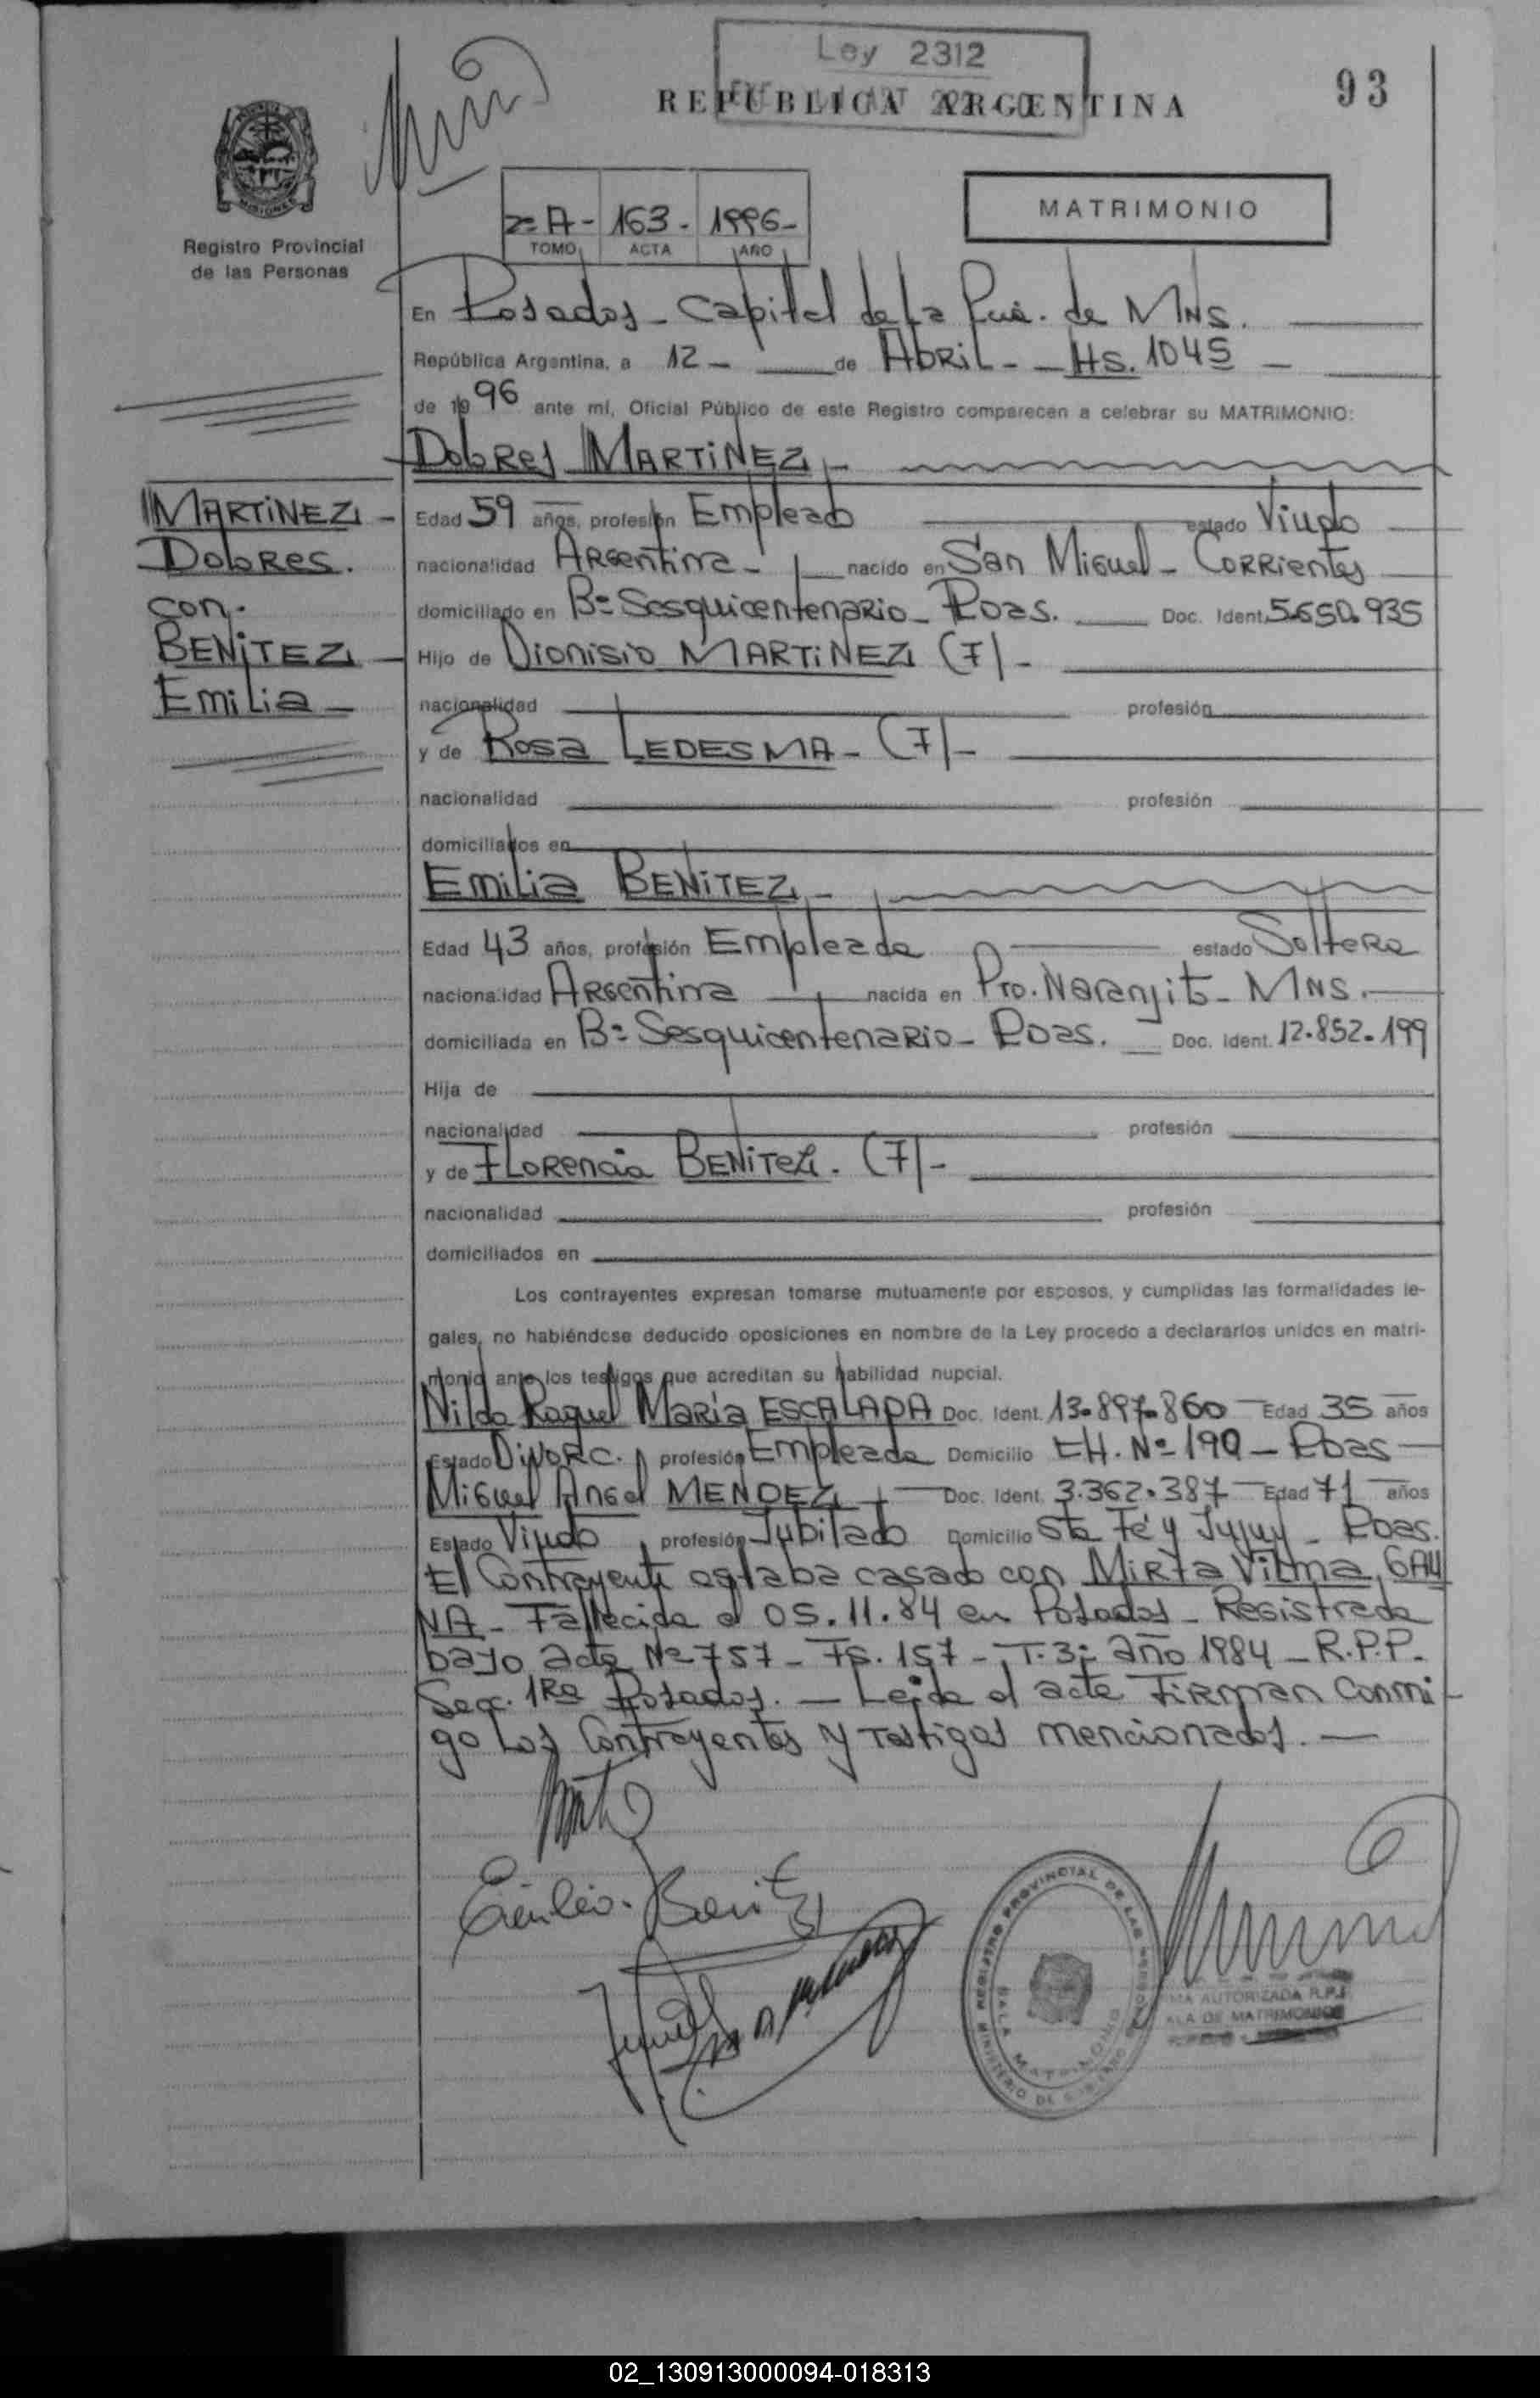 Ley 2312
REPUBLICA ARGENTINA
93
MISIONES
Registro Provincial
de las Personas
2º A - 163 - 1996 -
TOMO ACTA AÑO
MATRIMONIO
En Posadas - Capital de la Pcia. de MNS.
República Argentina, a 12 - de Abril - Hs. 1045 -
de 1996 ante mí, Oficial Público de este Registro comparecen a celebrar su MATRIMONIO:
Dolores MARTINEZ -
MARTINEZ -
Dolores.
con.
BENITEZ -
Emilia -
Edad 59 años, profesión Empleado estado Viudo
nacionalidad Argentina - nacido en San Miguel - Corrientes
domiciliado en Bº Sesquicentenario - Pdas. Doc. Ident. 5.650.935
Hijo de Dionisio MARTINEZ (F) -
nacionalidad profesión
y de Rosa LEDESMA - (F) -
nacionalidad profesión
domiciliados en
Emilia BENITEZ -
Edad 43 años, profesión Empleada estado Soltera
nacionalidad Argentina nacida en Pto. Naranjito - MNS.
domiciliada en Bº Sesquicentenario - Pdas. Doc. Ident. 12.852.199
Hija de
nacionalidad profesión
y de Florencia BENITEZ. (F) -
nacionalidad profesión
domiciliados en
Los contrayentes expresan tomarse mutuamente por esposos, y cumplidas las formalidades le-
gales, no habiéndose deducido oposiciones en nombre de la Ley procedo a declararlos unidos en matri-
monio ante los testigos que acreditan su habilidad nupcial.
Nilda Raquel María ESCALADA Doc. Ident. 13.897.860 Edad 35 años
Estado Divorc. profesión Empleada Domicilio CH. Nº 190 - Pdas
Miguel Angel MENDEZ Doc. Ident. 3.362.387 Edad 71 años
Estado Viudo profesión Jubilado Domicilio Sta Fé y Jujuy - Pdas.
El Contrayente estaba casado con Mirta Vilma GAU
NA - Fallecida el 05.11.84 en Posadas - Registrada
bajo acta Nº 757 - Fs. 157 - T. 3º año 1984 - R.P.P.
Secc. 1Ra Posadas. - Leida el acta Firman Conmi
go Los Contrayentes y Testigos mencionados. -
Emilia Benitez
REGISTRO PROVINCIAL DE LAS PERSONAS
SALA MATRIMONIO
MINISTERIO DE GOBIERNO
FIRMA AUTORIZADA R.P.P.
SALA DE MATRIMONIOS
02_130913000094-018313